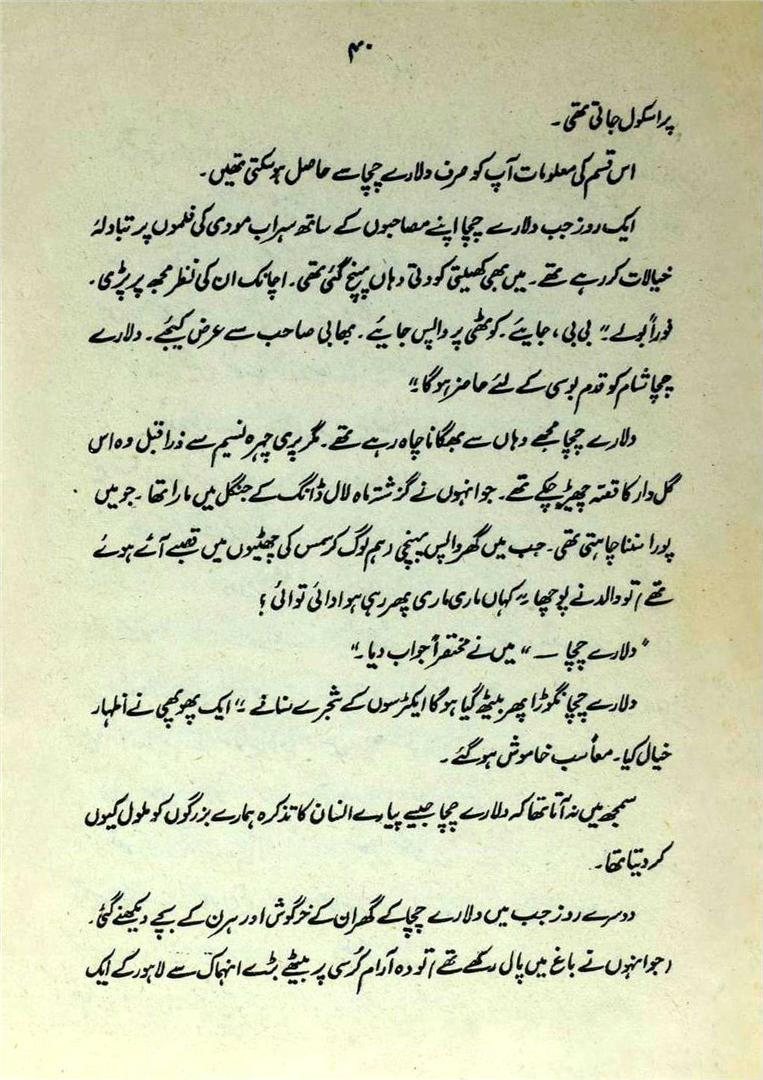 ۴۰
پر اسکول جاتی تھی۔
اس قسم کی معلومات آپ کو صرف دلارے چچا سے حاصل ہو سکتی تھیں۔
ایک روز جب دلارے چچا اپنے مصاحبوں کے ساتھ سہراب مودی کی فلموں پر تبادلۂ
خیالات کر رہے تھے۔ میں بھی کھیلتی کودتی وہاں پہنچ گئی تھی۔ اچانک ان کی نظر مجھ پر پڑی۔
فوراً بولے۔" بی بی، جایئے۔ کوٹھی پر واپس جایئے۔ بھابی صاحب سے عرض کیجئے۔ دلارے
چچا شام کو قدم بوسی کے لئے حاضر ہو گا۔"
دلارے چچا مجھے وہاں سے بھگانا چاہ رہے تھے۔ مگر پری چہرہ نسیم سے ذرا قبل وہ اس
گل دار کا قصہ چھیڑ چکے تھے۔ جو انہوں نے گزشتہ ماہ لال ڈانگ کے جنگل میں مارا تھا۔ جو میں
پورا سننا چاہتی تھی۔ جب میں گھر واپس پہنچی (ہم لوگ کرسمس کی چھٹیوں میں قصبے آئے ہوئے
تھے) تو والد نے پوچھا۔" کہاں ماری ماری پھر رہی ہو ادائی توائی؟
"دلارے چچا —" میں نے مختصراً جواب دیا۔"
دلارے چچا نگوڑا پھر بیٹھ گیا ہوگا ایکٹرسوں کے شجرے سنانے۔" ایک پھوپھی نے اظہار
خیال کیا۔ معاً سب خاموش ہو گئے۔
سمجھ میں نہ آتا تھا کہ دلارے چچا جیسے پیارے انسان کا تذکرہ ہمارے بزرگوں کو ملول کیوں
کر دیتا تھا۔
دوسرے روز جب میں دلارے چچا کے گھر ان کے خرگوش اور ہرن کے بچے دیکھنے گئی۔
(جو انہوں نے باغ میں پال رکھے تھے) تو وہ آرام کرسی پر بیٹھے بڑے انہماک سے لاہور کے ایک